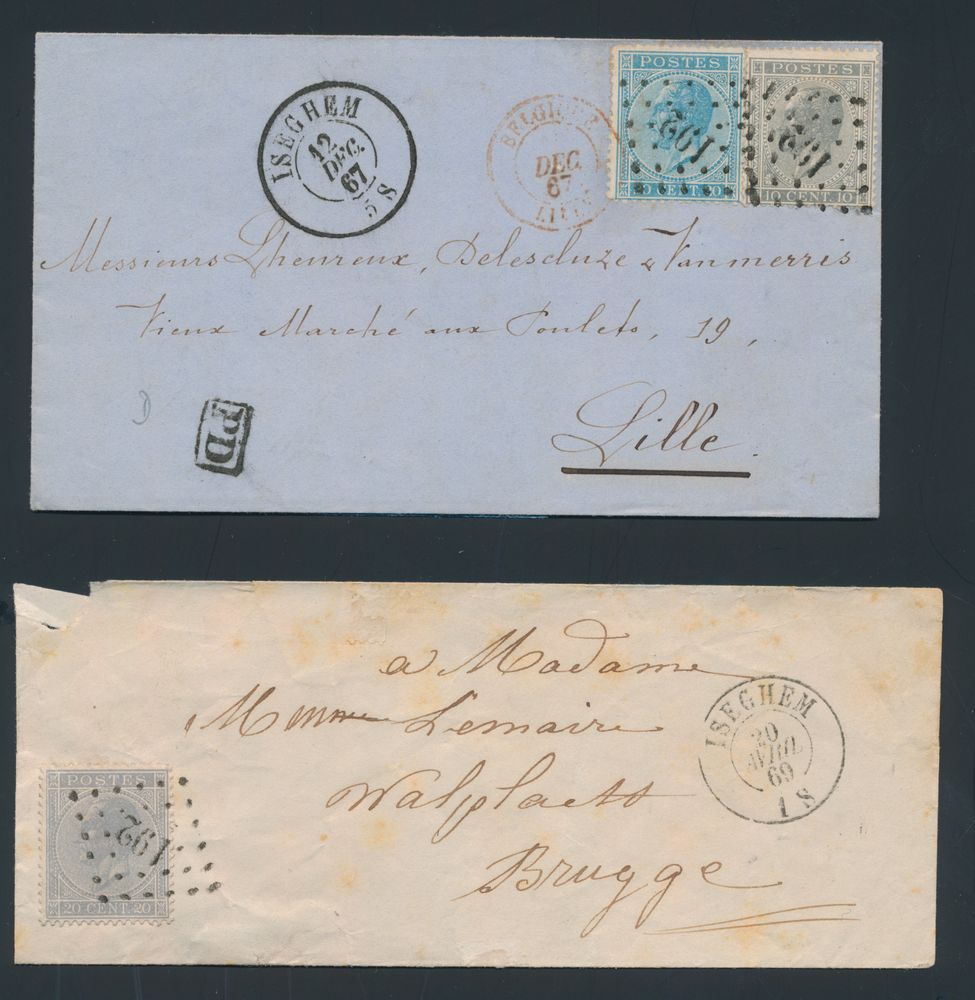 ISEGHEM
12
DEC.
67
5 S
DEC.
67
POSTES
192
POSTES
192
10 CENT. 10
Messieurs Lheureux, Delescluze & Vanmerris
Vieux Marché aux Poulets, 19,
Lille.
D
PD
a Madame
Lemaire
Brugge
ISEGHEM
20
AVRIL
69
1 S
POSTES
192
20 CENT. 20